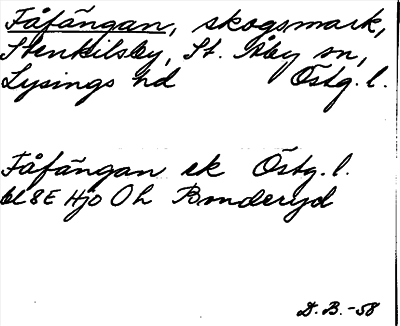 Fåfängan, skogsmark,
Stenkilsby, St. Åby sn,
Lysings hd Östg. l.
Fåfängan ek Östg. l.
bl 8E Hjo Öh Bonderyd
D. B. -58